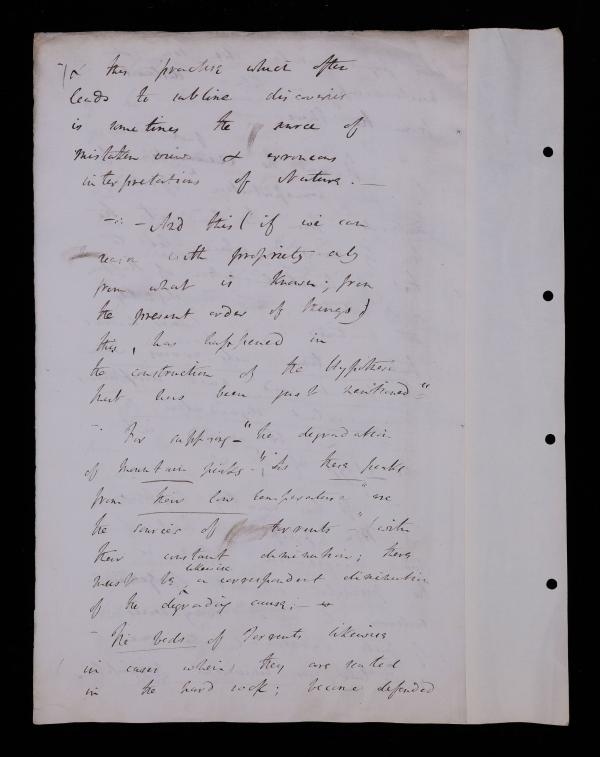 & this practise which often
leads to sublime discoveries
is sometimes the source of
mistaken views & erroneous
interpretations of Nature. —
— And this (if we can
reason with propriety only
from what is known; from
the present order of things)
this, has happened in
the construction of the Hypothesis
that has been just mentioned"
For supposing — "the degradation
of mountain peaks —"; As these peaks
from their low temperature "are
the sources of torrents —" (with
their constant diminution; there
must be likewise a correspondent diminution
of the degrading cause; —
— The beds of Torrents likewise
in cases where they are seated
in the hard rock; become defended